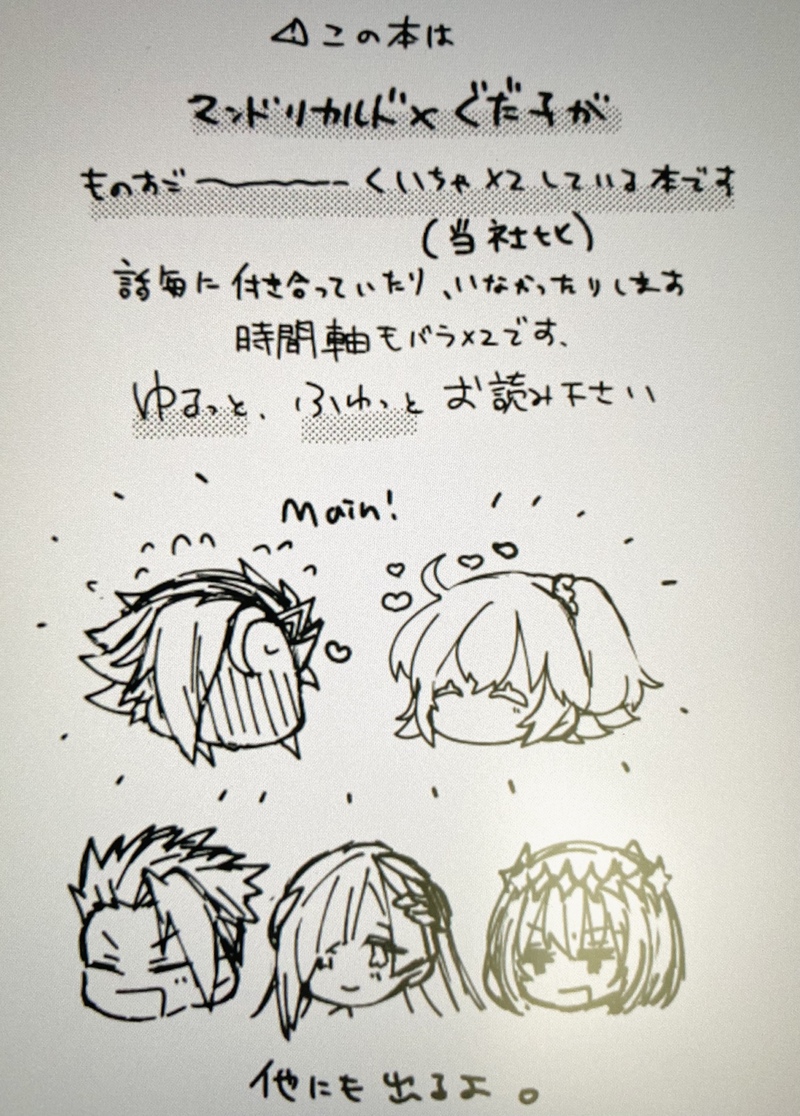 ⚠この本は
マンドリカルド×ぐだ子が
ものすご〜〜〜くいちゃ×2している本です
(当社比)
話毎に付き合っていたり、いなかったりします
時間軸もバラ×2です、
ゆるっと、ふわっとお読み下さい
Main!
他にも出るよ。